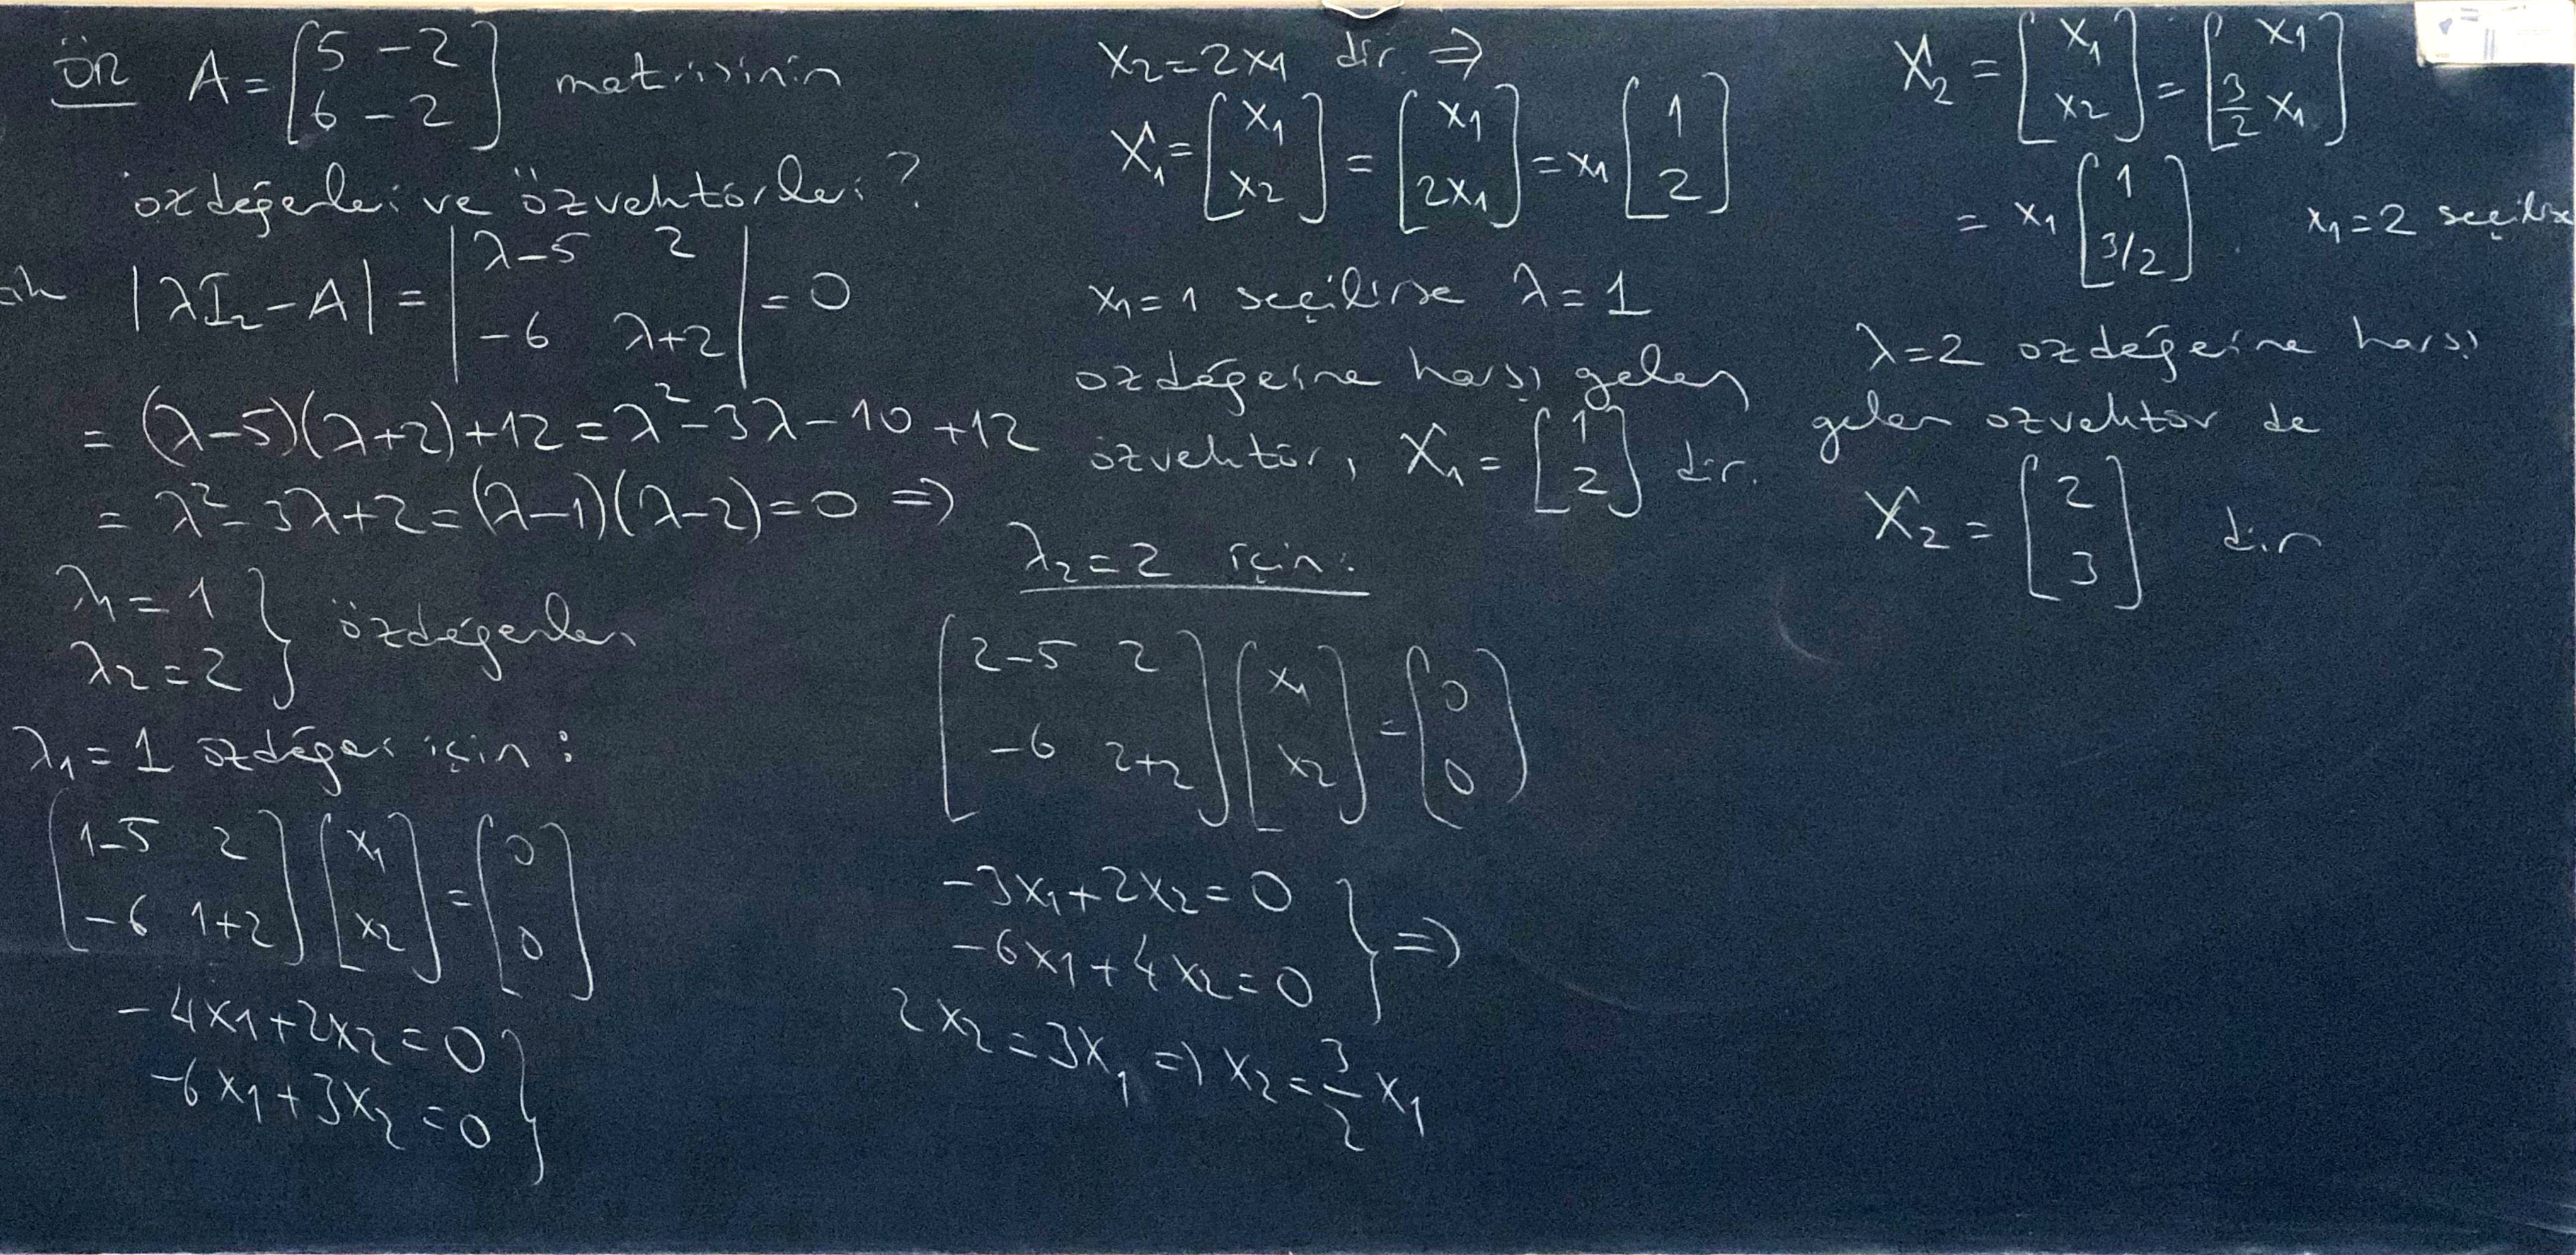 Ör A = [5 -2; 6 -2] matrisinin
özdeğerleri ve özvektörleri?
|λI₂ - A| = |λ-5 2; -6 λ+2| = 0
= (λ-5)(λ+2)+12 = λ²-3λ-10+12
= λ²-3λ+2 = (λ-1)(λ-2) = 0 ⇒
λ₁ = 1
λ₂ = 2 } özdeğerler
λ₁ = 1 özdeğer için :
[1-5 2; -6 1+2] [x₁; x₂] = [0; 0]
-4x₁+2x₂ = 0
-6x₁+3x₂ = 0 }
x₂ = 2x₁ dir. ⇒
X₁ = [x₁; x₂] = [x₁; 2x₁] = x₁ [1; 2]
x₁ = 1 seçilirse λ = 1
özdeğerine karşı gelen
özvektör, X₁ = [1; 2] dir.
λ₂ = 2 için:
[2-5 2; -6 2+2] [x₁; x₂] = [0; 0]
-3x₁+2x₂ = 0
-6x₁+4x₂ = 0 } ⇒
2x₂ = 3x₁ ⇒ x₂ = 3/2 x₁
X₂ = [x₁; x₂] = [x₁; 3/2 x₁]
= x₁ [1; 3/2]. x₁ = 2 seçilirse
λ = 2 özdeğerine karşı
gelen özvektör de
X₂ = [2; 3] dir